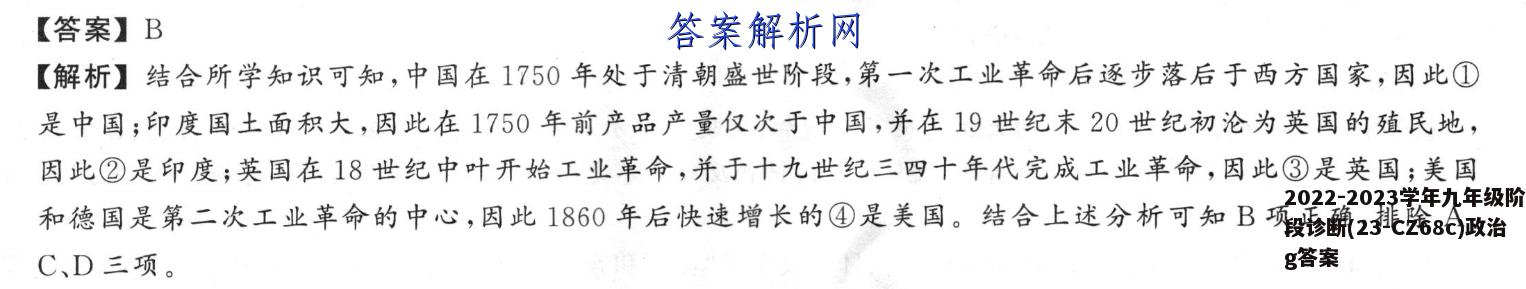 【答案】B
答案解析网
【解析】结合所学知识可知,中国在1750年处于清朝盛世阶段,第一次工业革命后逐步落后于西方国家,因此①
是中国;印度国土面积大,因此在1750年前产品产量仅次于中国,并在19世纪末20世纪初沦为英国的殖民地,
因此②是印度;英国在18世纪中叶开始工业革命,并于十九世纪三四十年代完成工业革命,因此③是英国;美国
和德国是第二次工业革命的中心,因此1860年后快速增长的④是美国。结合上述分析可知B项正确,排除A、
C、D三项。
2022-2023学年九年级阶
段诊断(23-CZ68c)政治
g答案